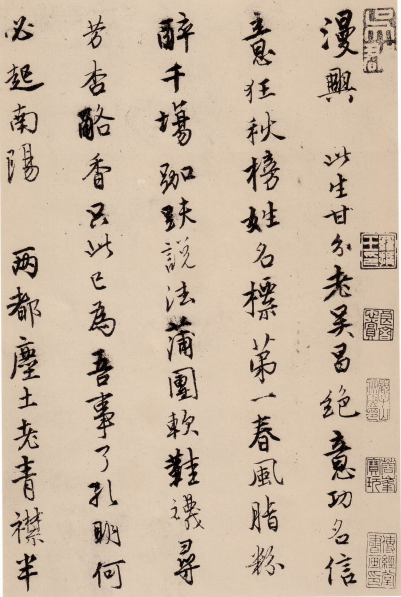 漫興 此生甘分老吳昌絕意功名信
意狂秋榜姓名標第一春風脂粉
醉千塲跏趺說法蒲團軟鞋襪尋
芳杏酪香只此已為吾事了孔明何
必起南陽 两都塵土老青襟半